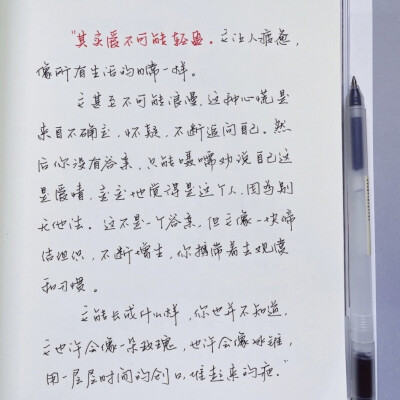 “其实爱不可能轻盈。它让人疲惫,
像所有生活的日常一样。
它甚至不可能浪漫,这种心慌是
来自不确定,怀疑,不断追问自己。然
后你没有答案,只能嗫嚅劝说自己这
是爱情,定定地觉得是这个人,因为别
无他法。这不是一个答案,但它像一块缔
结组织,不断增生,你携带着去观虞
和习惯。
它能长成什么样,你也并不知道,
它也许会像一朵玫瑰,也许会像
用一层层时间的创口,堆起来的疤。”